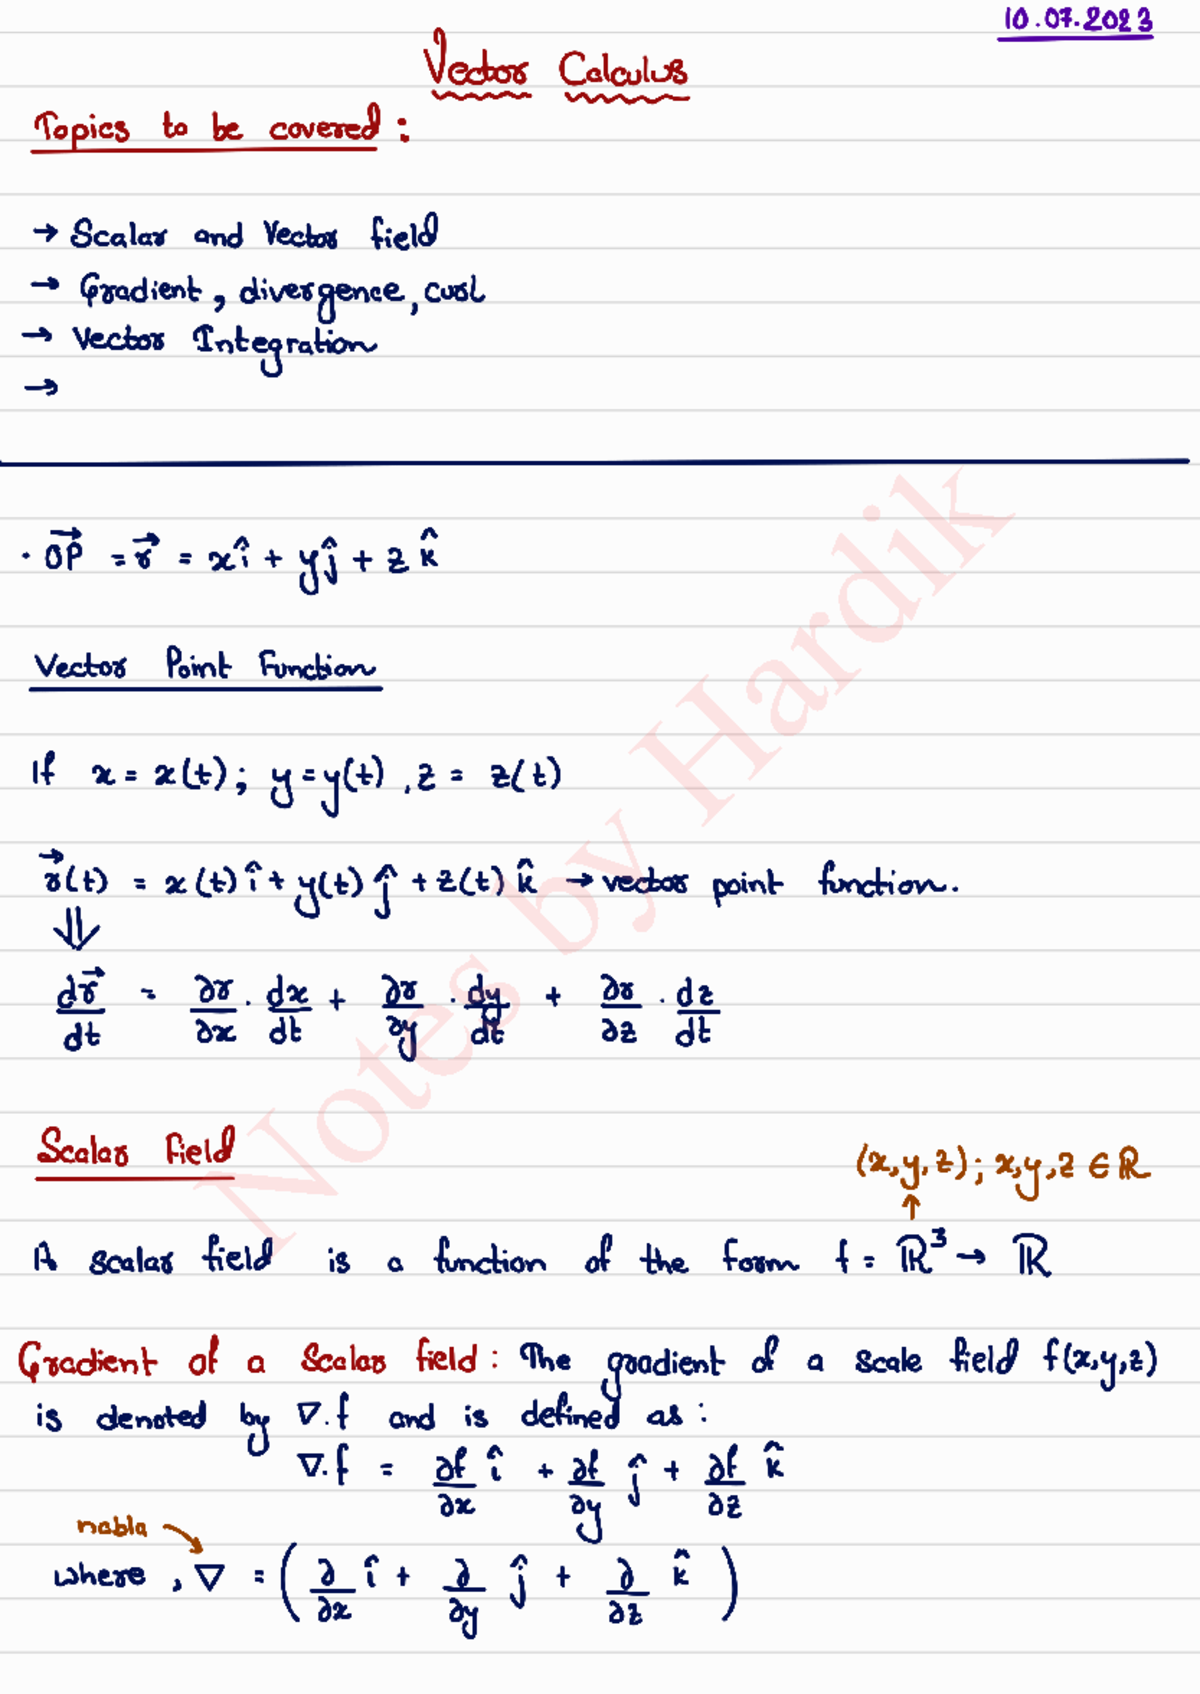 10.07.2023
Vector Calculus
Topics to be covered :
→ Scalar and Vector field
→ Gradient, divergence, curl
→ Vector Integration
→
· OP⃗ = r⃗ = xî + yĵ + z k̂
Vector Point Function
If x = x(t); y = y(t), z = z(t)
r⃗(t) = x(t) î + y(t) ĵ + z(t) k̂ → vector point function.
⇓
dr⃗/dt = ∂r/∂x · dx/dt + ∂r/∂y · dy/dt + ∂r/∂z · dz/dt
Scalar Field
(x,y,z); x,y,z ∈ ℝ
↑
A scalar field is a function of the form f = ℝ³ → ℝ
Gradient of a Scalar field : The gradient of a scale field f(x,y,z)
is denoted by ∇.f and is defined as :
∇.f = ∂f/∂x î + ∂f/∂y ĵ + ∂f/∂z k̂
nabla
where, ∇ = (∂/∂x î + ∂/∂y ĵ + ∂/∂z k̂)
Notes by Hardik